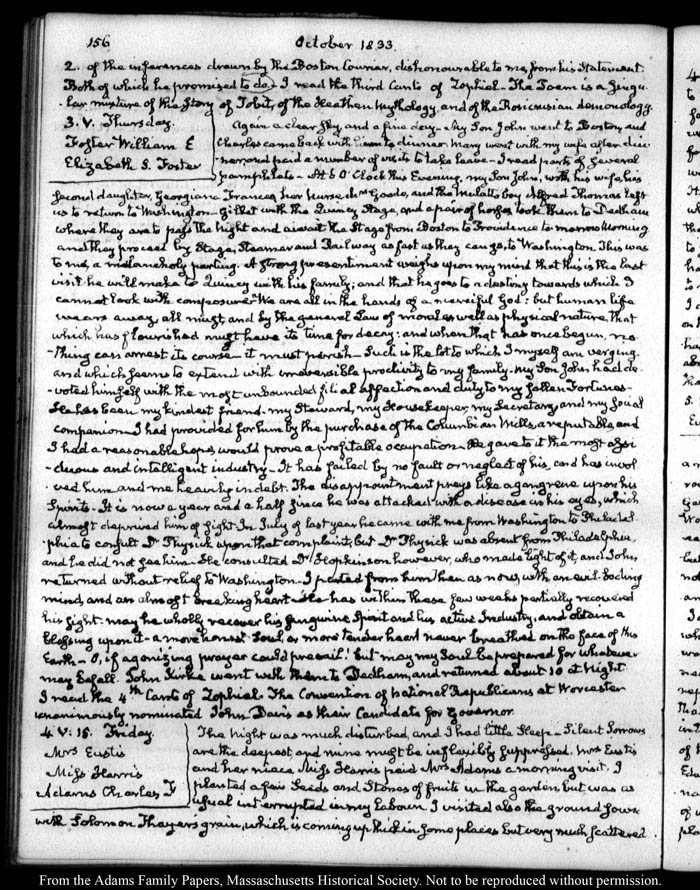 156
October 1833.
2. of the inferences drawn by the Boston Courier, dishonourable to me, from his Statement.
Both of which he promised to do. I read the third Canto of Zophiel. The Poem is a singu-
-lar mixture of the Story of Tobit, of the Heathen mythology, and of the Rosicrusian demonology.
3. V. Thursday.
Foster William E
Elizabeth S. Foster
Again a clear sky and a fine day. My Son John went to Boston and
Charles came back with him to dinner. Mary went with my wife after din-
-ner and paid a number of visits to take leave. I read parts of several
pamphlets. At 5 O'Clock this Evening, my Son John, with his wife, his
second daughter, Georgiana Frances, her nurse Mrs Goods, and the mulatto boy Alfred Thomas left
us to return to Washington. Gillet with the Quincy Stage, and a pair of horses took them to Dedham
where they are to pass the night and await the Stage from Boston to Providence to-morrow Morning
and they proceed by Stage, Steamer and Railway as fast as they can go, to Washington. This was
to me, a melancholy parting. A strong presentiment weighs upon my mind that this is the last
visit he will make to Quincy with his family; and that he goes to a destiny towards which I
cannot look with composure. We are all in the hands of a merciful God: but human life
wears away, all must and by the general Law of moral as well as physical nature, that
which has flourished must have its time for decay: and when that has once begun, no-
-thing can arrest its course it must perish. Such is the lot to which I myself am verging.
and which seems to extend with irreversible proclivity to my family. My Son John had de-
-voted himself with the most unbounded filial affection and duty to my fallen Fortunes.
He has been my kindest friend. my Steward, my Housekeeper, my Secretary, and my social
companion. I had provided for him by the purchase of the Columbian Mills, a reputable, and
I had a reasonable hope, would prove a profitable occupation. He gave to it the most assi-
-duous and intelligent industry. It has failed by no fault or neglect of his, and has invol-
-ved him and me heavily in debt. The disappointment preys like a gangrene upon his
Spirits. It is now a year and a half since he was attacked with a disease in his eyes, which
almost deprived him of sight. In July of last year he came with me from Washington to Philadel-
-phia to consult Dr Physick upon that complaint, but Dr Physick was absent from Philadelphia,
and he did not see him. He consulted Dr Hopkinson however, who made light of it, and John
returned without relief to Washington. I parted from him then as now, with an evil boding
mind, and an almost breaking heart. He has within these few weeks partially recovered
his sight. may he wholly recover his sanguine Spirit and his active Industry, and obtain a
blessing upon it. a more honest Soul, or more tender heart never breathed on the face of this
Earth. O, if agonizing prayer could prevail! but may my Soul be prepared for whatever
may befall. John Kirke went with them to Dedham, and returned about 10 at Night.
I read the 4th Canto of Zophiel. The Convention of National Republicans at Worcester
unanimously nominated John Davis as their Candidate for Governor.
4. V: 15. Friday.
Mrs Eustis
Miss Harris
Adams Charles F
The night was much disturbed, and I had little Sleep. Silent Sorrows
are the deepest and mine must be inflexibly suppressed. Mrs Eustis
and her niece Miss Harris paid Mrs Adams a morning visit. I
planted a few Seeds and Stones of fruits in the garden, but was as
usual interrupted in my labour. I visited also the ground sown
with Solomon Thayer's grain, which is coming up thick in some places but very much scattered
From the Adams Family Papers, Massachusetts Historical Society. Not to be reproduced without permission.